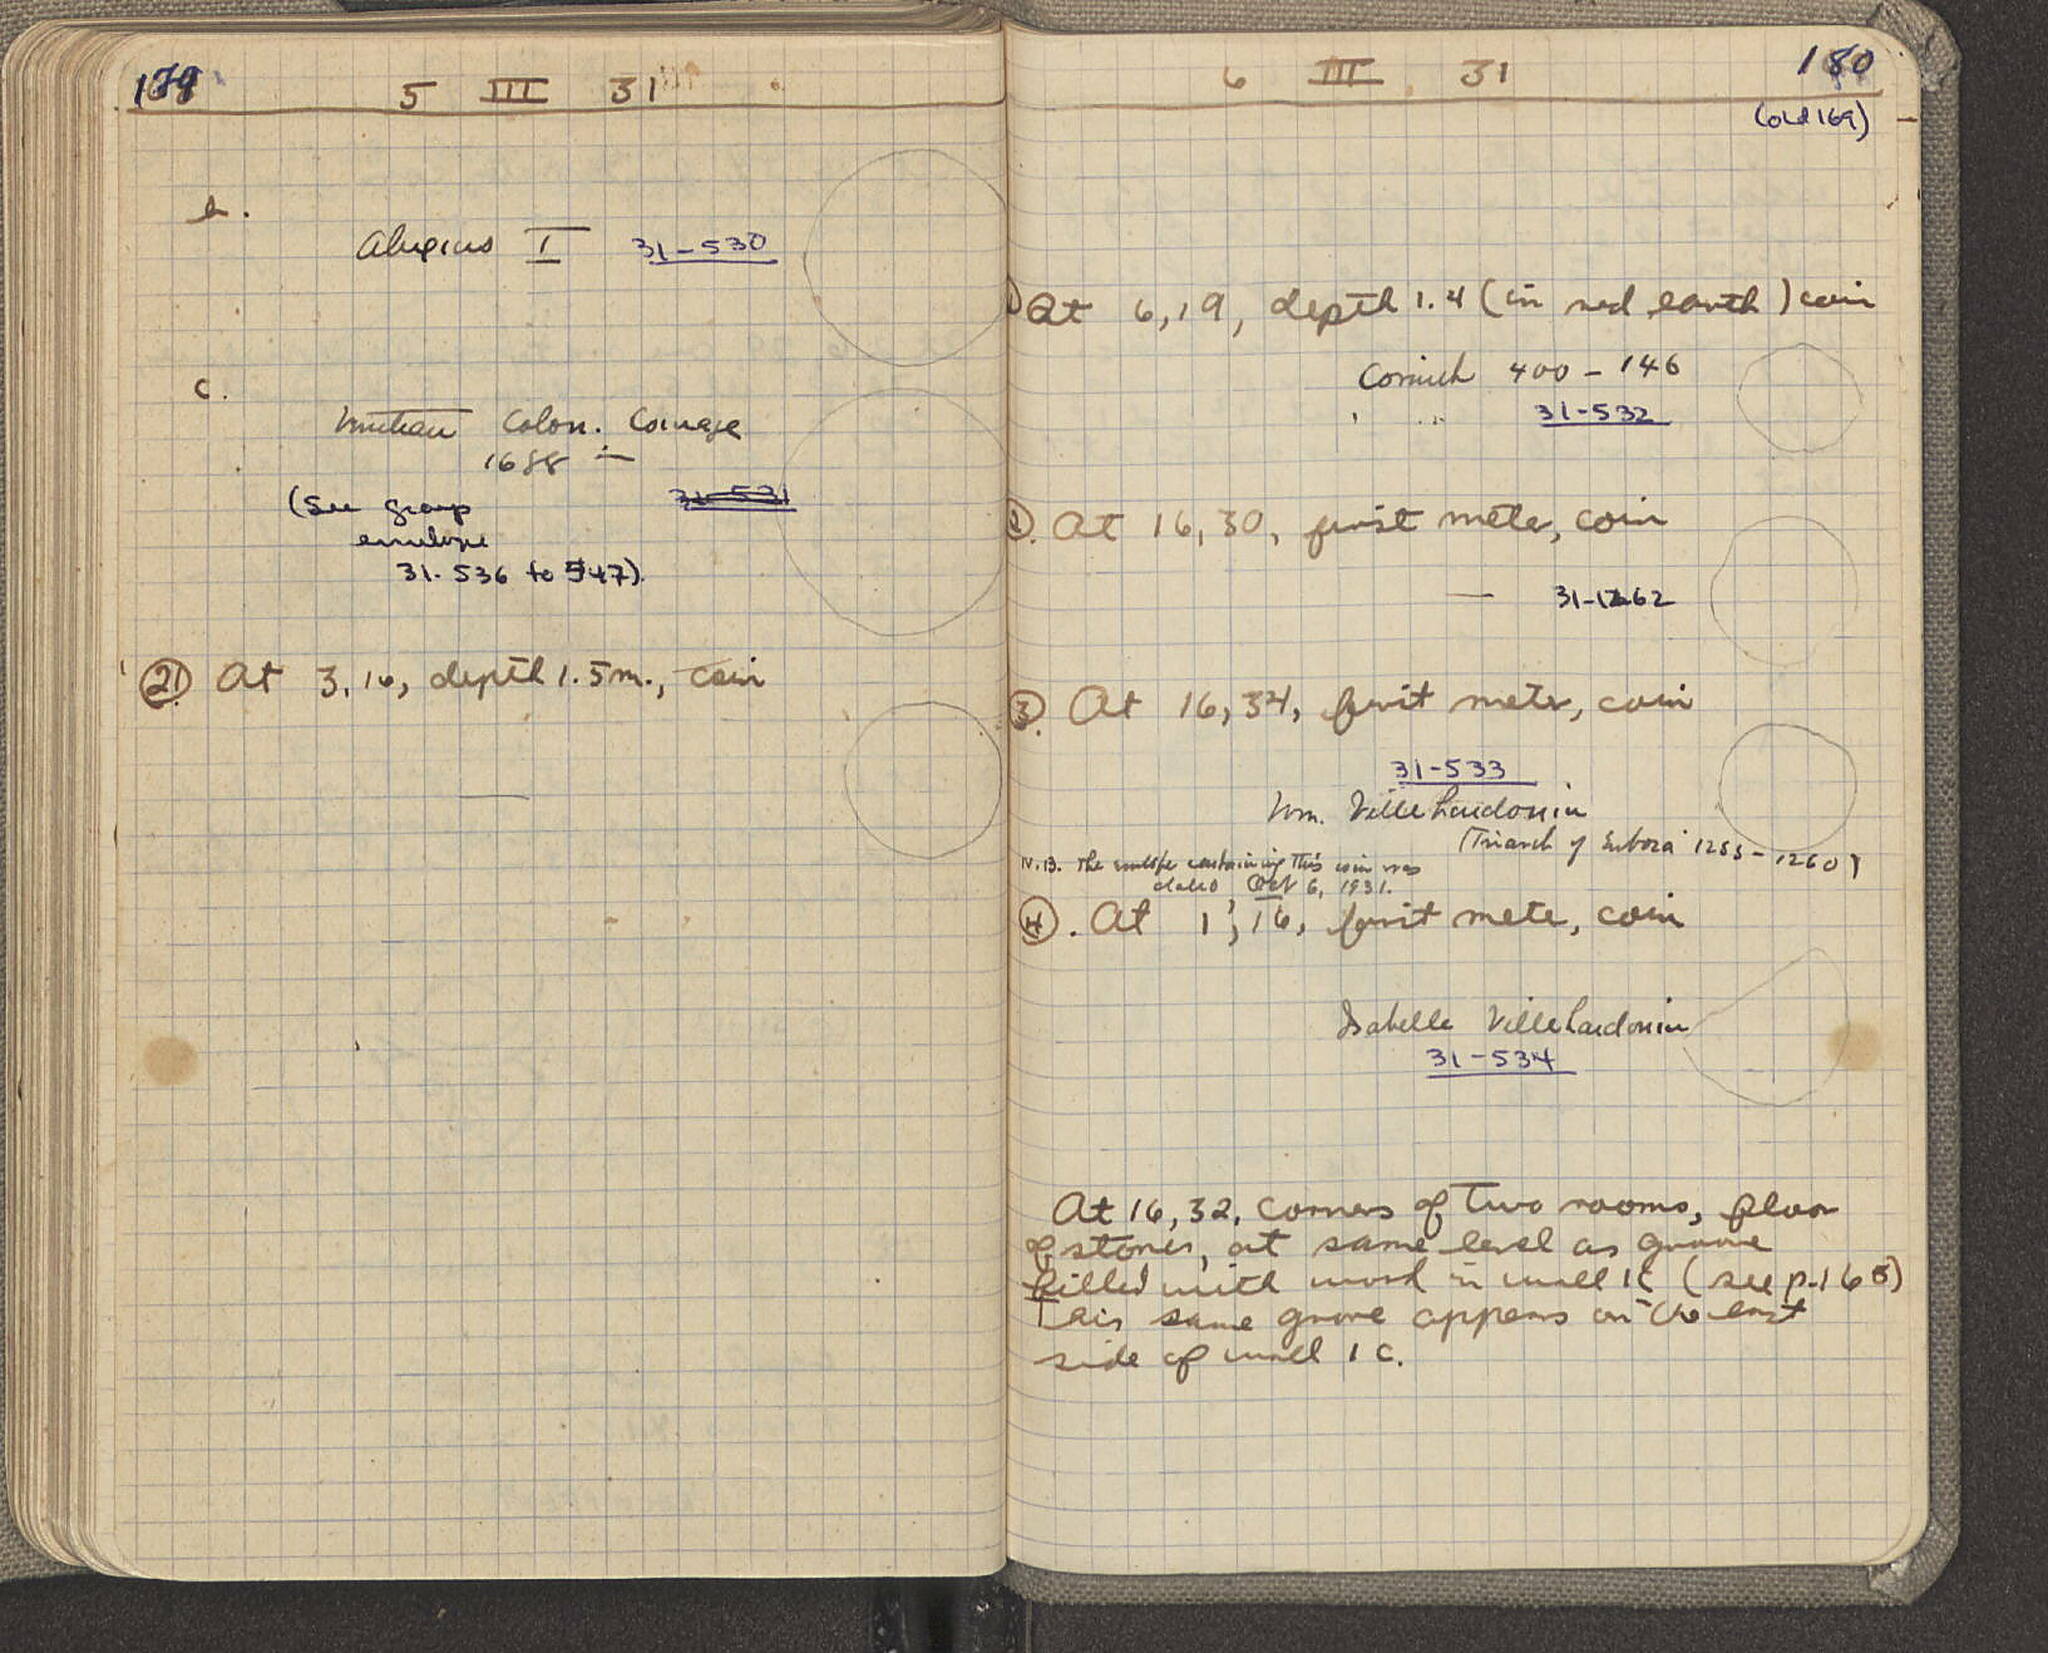 179
5 III 31
b.
Alexius I 31-530
c.
Venetian Colon. Coinage
1688 –
31-531
(See group
envelope
31-536 to 547)
21 At 3,16, depth 1.5 m., coin
—
180
6 III 31
(old 169)
1) At 6,19, depth 1.4 (in red earth) coin
Corinth 400 - 146
31-532
2. At 16,30, first meter, coin
— 31-1262
3. At 16,34, first meter, coin
31-533
Wm. Villehardouin
(Triarch of Euboea 1255-1260)
N.B. The envelope containing this coin was
dated Oct 6, 1931.
4. At 1', 16, first mete, coin
Isabelle Villehardouin
31-534
At 16,32, corners of two rooms, floor
of stones, at same level as groove
filled with wood in wall 1c (see p.168)
This same grove appears on the east
side of wall 1 c.